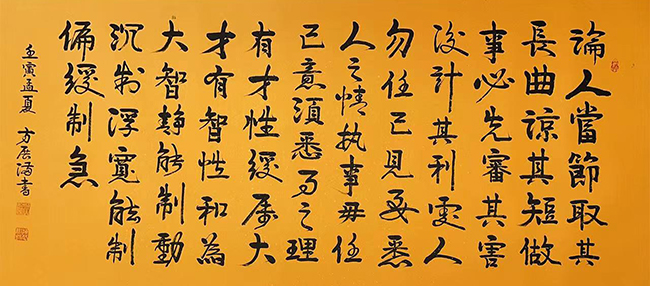 論人當節取其
長曲諒其短做
事必先審其害
後計其利處人
勿任己見要悉
人之情执事毋任
己意須悉事之理
有才性緩属大
才有智性和為
大智静能制動
沉制浮寬能制
偏緩制急
壬寅孟夏 方書